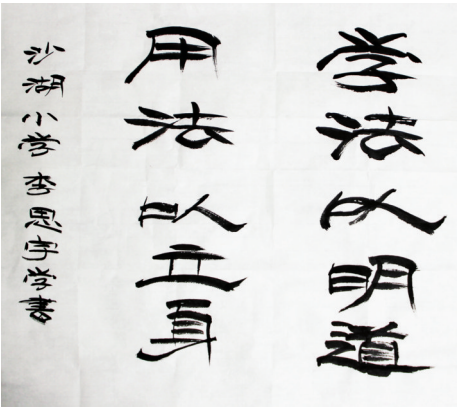 学法以明道
用法以立身
沙湖小学李思宇学书